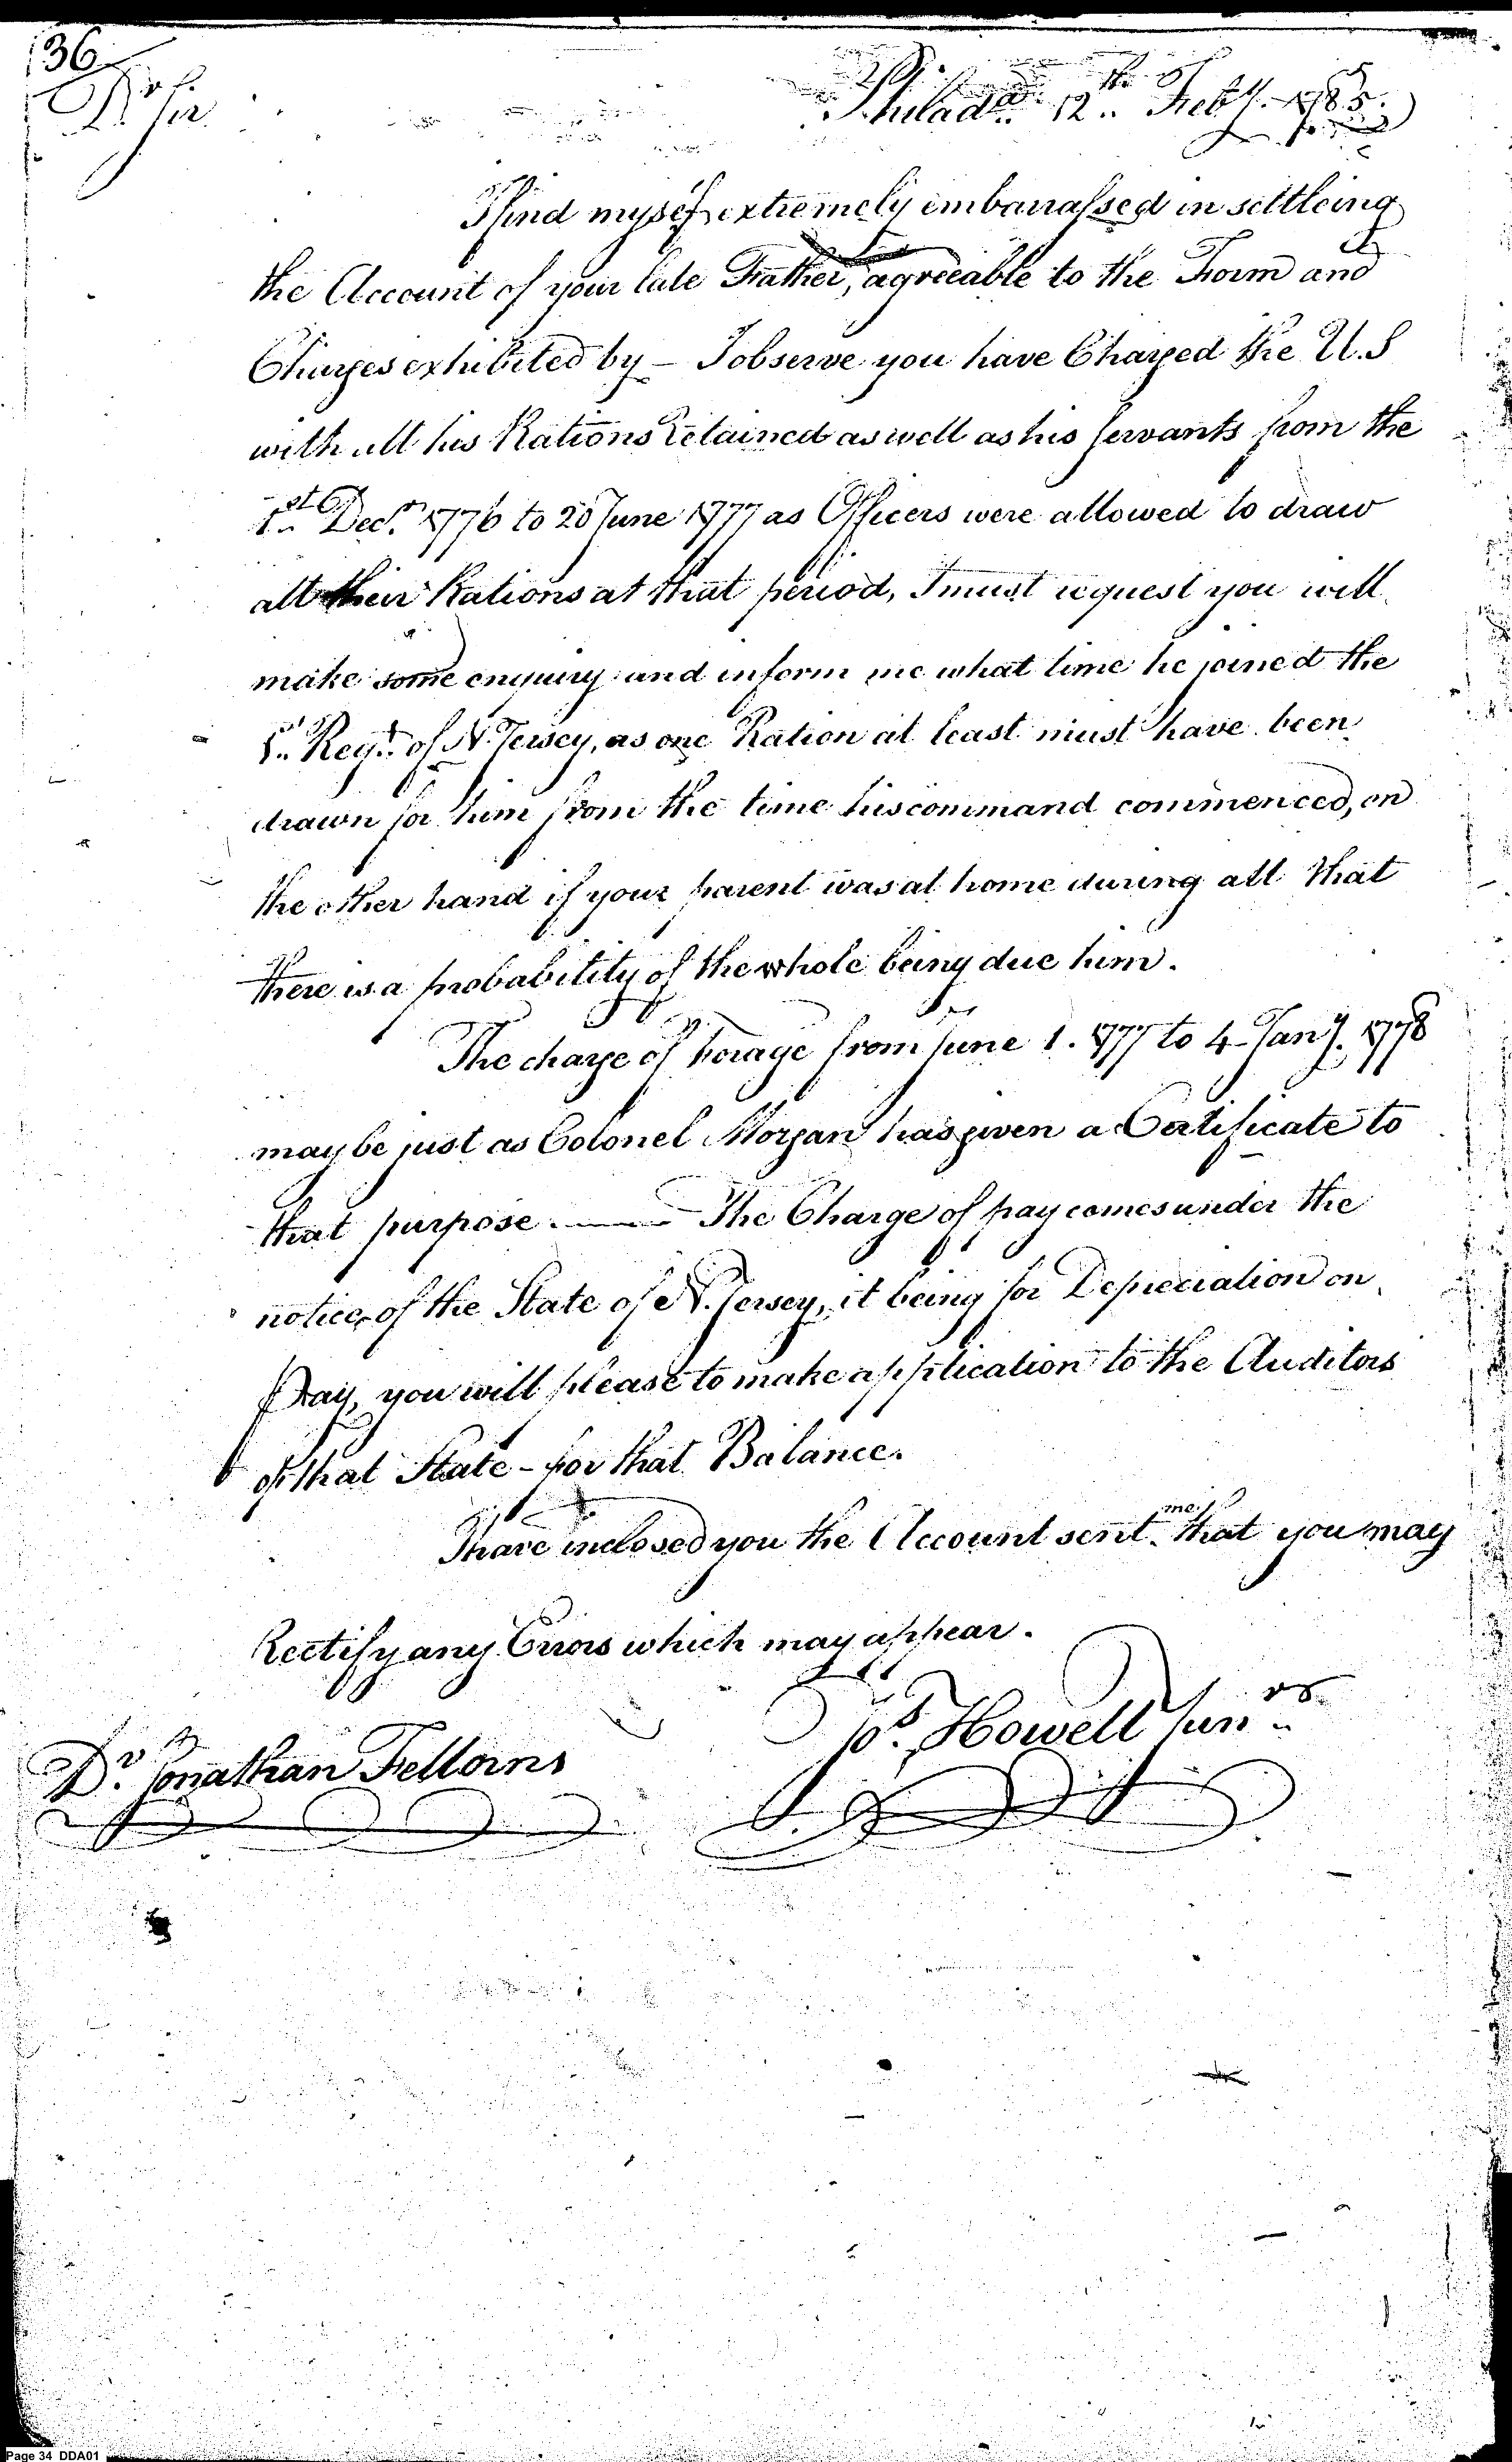 136
Dr Sir
Philada. 12th. Feby. 1785.
I find myself extremely embarrassed in settleing
the Account of your late Father, agreeable to the Form and
Charges exhibited by – I observe you have Charged the U.S
with all his Rations retained as well as his servants from the
1st. Decr. 1776 to 20 June 1777 as Officers were allowed to draw
all their Rations at that period, I must request you will
make some enquiry and inform me what time he joined the
1st. Regt. of N. Jersey, as one Ration at least must have been
drawn for him from the time his command commenced, on
the other hand if your parent was at home during all that
there is a probability of the whole being due him.
The charge of forage from June 1. 1777 to 4 Jany. 1778
may be just as Colonel Morgan has given a Certificate to
that purpose. —— The Charge of pay comes under the
notice of the State of N. Jersey, it being for Depreciation on
Pay, you will please to make application to the Auditors
of that State – for that Balance.
I have inclosed you the Account sent me that you may
Rectify any Errors which may appear.
Jos. Howell Junr.
Dr. Jonathan
Page 34 DDA01